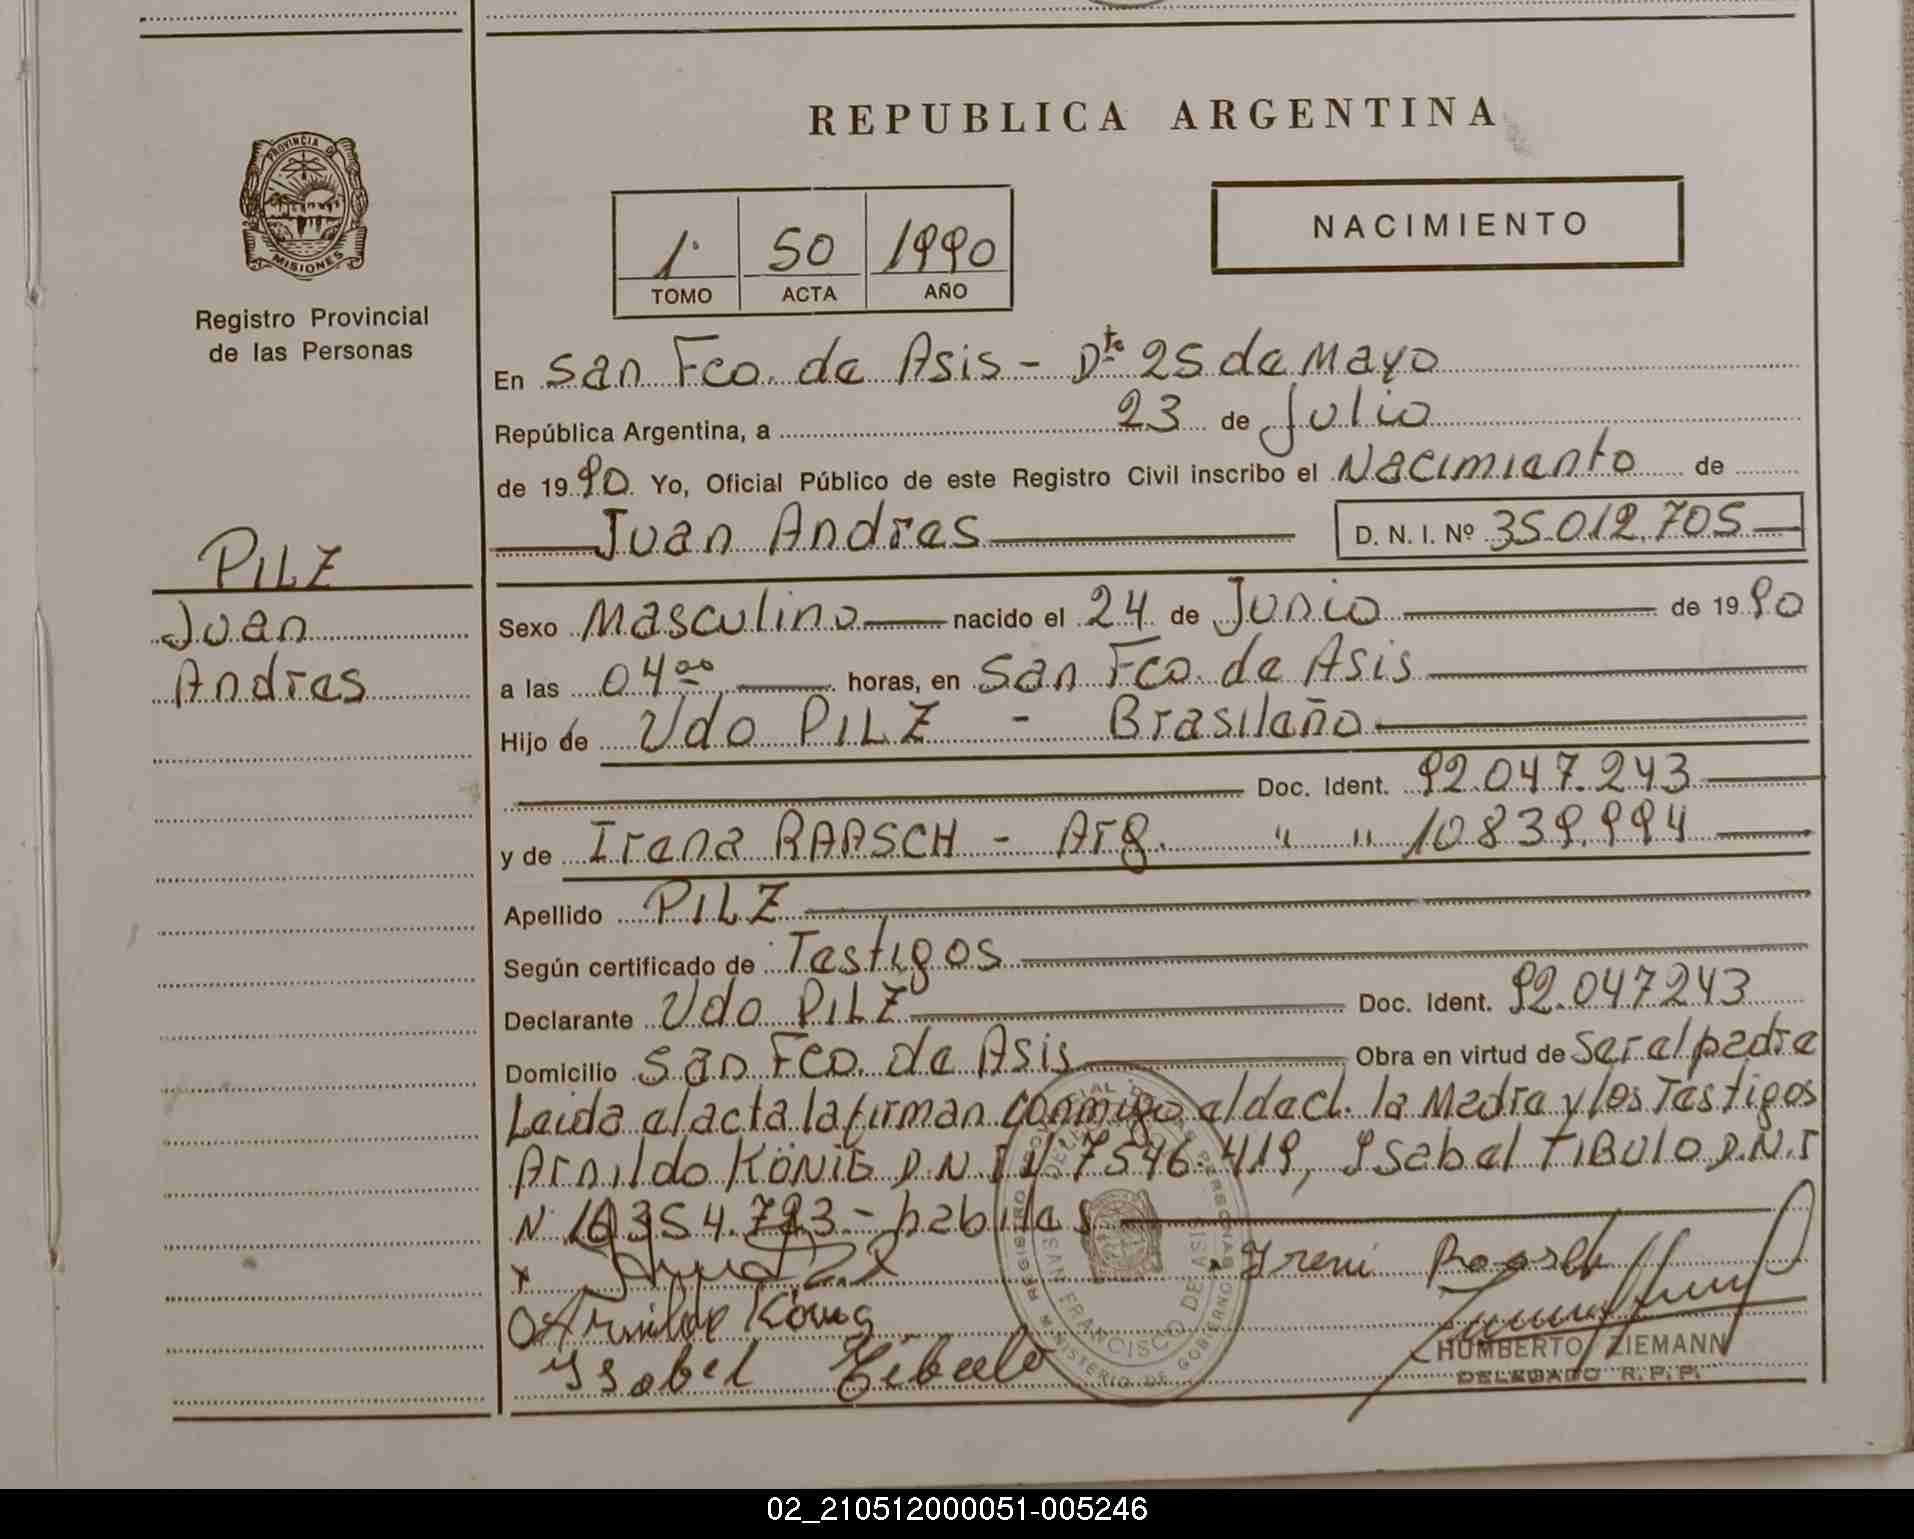 REPUBLICA ARGENTINA
PROVINCIA DE
MISIONES
Registro Provincial
de las Personas
1º 50 1990
TOMO ACTA AÑO
NACIMIENTO
En San Fco. de Asis - Dto 25 de Mayo
República Argentina, a 23 de Julio
de 1990 Yo, Oficial Público de este Registro Civil inscribo el Nacimiento de
Juan Andres D. N. I. Nº 35.012.705
PILZ
Juan
Andres
Sexo Masculino nacido el 24 de Junio de 1990
a las 04 00 horas, en San Fco. de Asis
Hijo de Udo PILZ - Brasileño
Doc. Ident. 92.047.243
y de Irene RAASCH - Arg. " " 10.839.994
Apellido PILZ
Según certificado de Testigos
Declarante Udo PILZ Doc. Ident. 92.047243
Domicilio San Fco. de Asis Obra en virtud de Ser el padre
Leida el acta la firman conmigo el decl. la Madre y los Testigos
Arnildo KÖNIG D.N.I 7546.419, Isabel TIBULO D.N.I
N. 354. - habiles
Ireni Raasch
Arnildo König
Isabel Tibulo
HUMBERTO ZIEMANN
DELEGADO R.P.P.
SAN FRANCISCO DE ASIS
MINISTERIO DE GOBIERNO
02_210512000051-005246